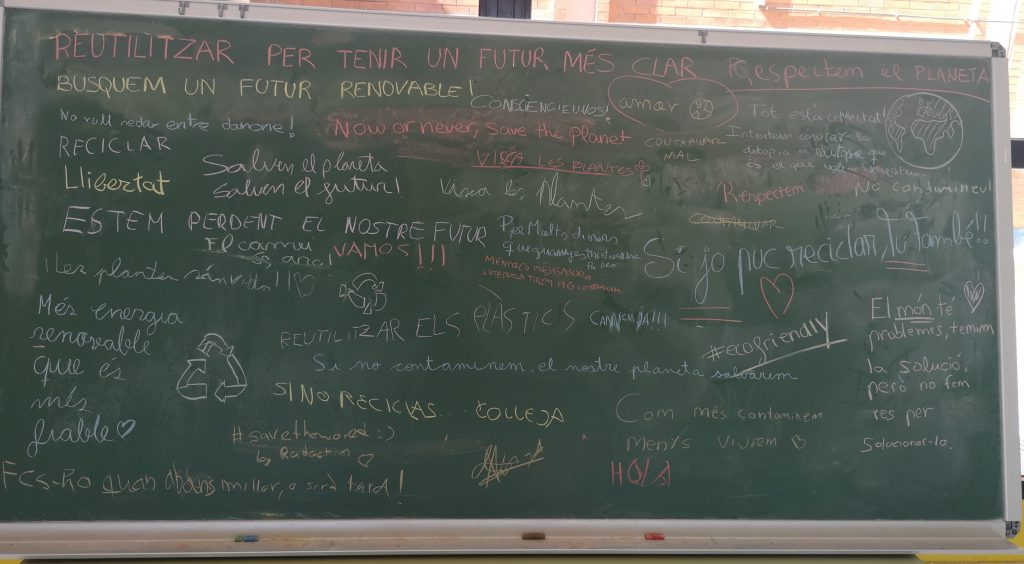 REUTILITZAR PER TENIR UN FUTUR MÉS CLAR
Respectem el PLANETA
BUSQUEM UN FUTUR RENOVABLE!
CONSCIENCIEU-VOS!
amar
Tot està
No vull nedar entre
Now or never, save the planet
CONTAMINAR
MAL
RECICLAR
VISCA LES PLANTES
Salvem el planeta
salvem el futur!
Llibertat
Visca les Plantes
Respectem
No contamineu!
CONTAMINAR
ESTEM PERDENT EL NOSTRE FUTUR
Per Molts diners
El canvi
és ara!
VAMOS!!!
Si jo puc reciclar, tu també!!
MENTRES MÉS BASURA
¡Les plantes són vida!!
Més energia
renovable
que és
més
fiable
REUTILITZAR ELS PLÀSTICS
CANVIEM JA!!!
#ecofriendly
El món té
problemes, tenim
la solució;
però no fem
res per
solucionar-lo.
Si no contaminem, el nostre planeta salvarem
SI NO RECICLAS... COLLEJA
Com més contaminem
menys viurem
#savetheworld :)
by
HOLA
Fes-ho quan abans millor, o serà tard!